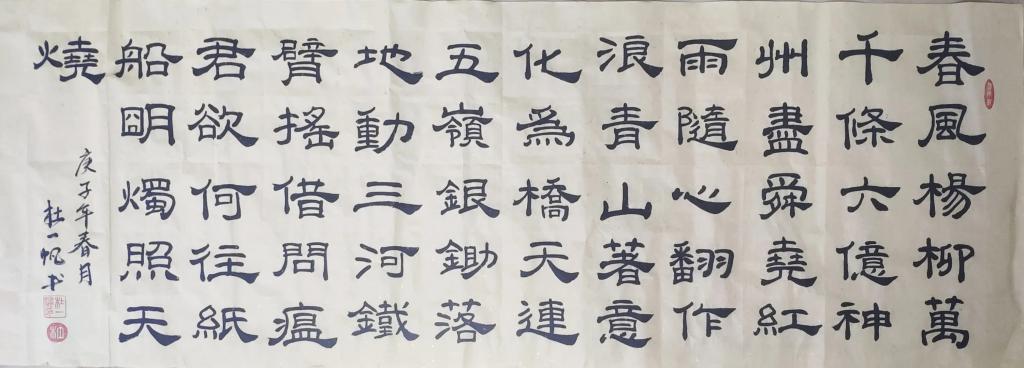 春風楊柳萬
千條六億神
州盡舜堯紅
雨隨心翻作
浪青山著意
化為橋天連
五嶺銀鋤落
地動三河鐵
臂搖借問瘟
君欲何往紙
船明燭照天
燒
庚子年春月
杜一帆书